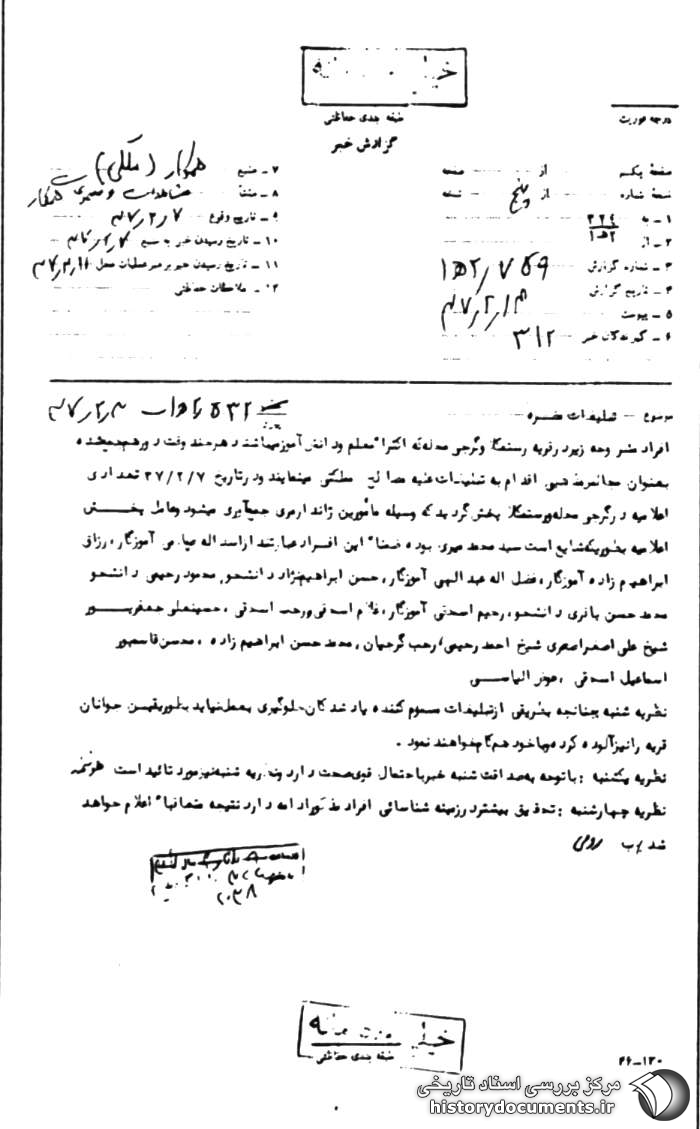 خیلی محرمانه
طبقه بندی حفاظتی
گزارش خبر
درجه فوریت
صفحهٔ یکم از صفحه
نسخهٔ شماره از پنج نسخه
۱ - به ۳۲۴
۲ - از ۱ه۲
۳ - شماره گزارش ۱ه۲/۷۵۹
۴ - تاریخ گزارش ۴۷/۲/۱۳
۵ - پیوست
۶ - گیرندگان خبر ۳۱۲
۷ - منبع همکار
۸ - منشأ مشاهدات و همکار
۹ - تاریخ وقوع ۴۷/۲/۷
۱۰ - تاریخ رسیدن خبر به منبع ۴۷/۲/۷
۱۱ - تاریخ رسیدن خبر به رهبر عملیات محل ۴۷/۲/۱۱
۱۲ - ملاحظات حفاظتی
موضوع - تبلیغات مضره
افراد مشروحه زیر در قریه رستمکلا و گرجی محله که اکثرا" معلم و دانش آموز میباشند هر چند وقت دور هم جمع شده
بعنوان مجالس مذهبی اقدام به تبلیغات علیه مصالح مملکتی مینمایند و در تاریخ ۴۷/۲/۷ تعدادی
اعلامیه در گرجی محله و رستمکلا پخش گردید که وسیله مأمورین ژاندارمری جمع آوری میشود و عامل پخش
اعلامیه بطوریکه شایع است سید محمد میری بوده ضمنا" این افراد عبارتند از اسداله عباسی آموزگار، رزاق
ابراهیم زاده آموزگار، فضل اله عبدالهی آموزگار، حسن ابراهیم نژاد دانشجو، محمود رحیمی دانشجو
محمد حسن باقری دانشجو، رحیم اسحقی آموزگار، غلام اسحقی و رجب اسحقی، حسینعلی جعفرپور
شیخ علی اصغر اصغری شیخ احمد رحیمی، رجب گرجیان، محمد حسن ابراهیم زاده، محسن قاسمپور
اسماعیل اسحقی، هوتر الیاسی
نظریه شنبه چنانچه بطریقی از تبلیغات مسموم کننده یاد شدگان جلوگیری بعمل نیاید بطور یقین جوانان
قریه را نیز آلوده کرده و با خود همگام خواهند نمود.
نظریه یکشنبه : با توجه به صداقت شنبه خبر باحتمال قوی صحت دارد و نظریه شنبه نیز مورد تائید است
نظریه چهارشنبه : تحقیق بیشتر در زمینه شناسائی افراد مذکور ادامه دارد نتیجه متعاقبا" اعلام خواهد
شد
خیلی محرمانه
طبقه بندی حفاظتی
۴۶-۱۲۰
مرکز بررسی اسناد تاریخی
historydocuments.ir